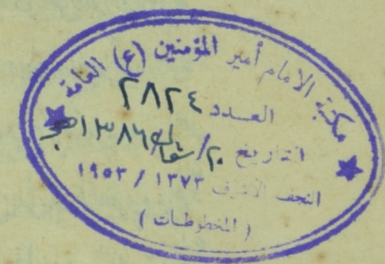 مكتبة الامام أمير المؤمنين (ع) العامة
العدد ٢٨٢٤
التاريخ ٢٠/شعبان/١٣٨٦هج
النجف الاشرف ١٣٧٣ / ١٩٥٣
(المخطوطات)